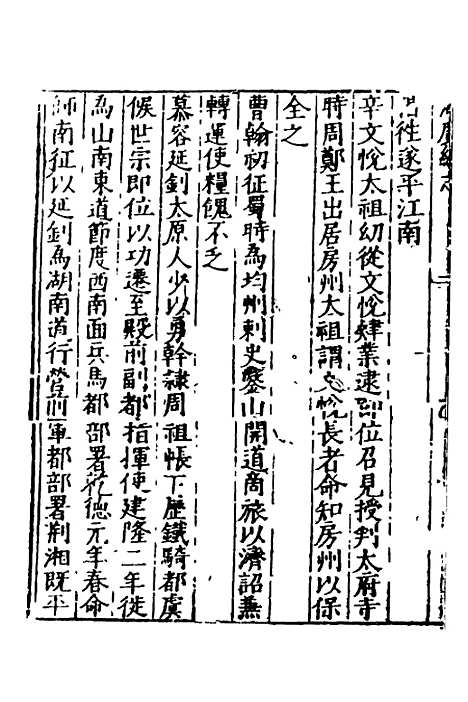 往遂平江南
辛文悅太祖幼從文悅肄業逮即位召見授判太府寺
時周鄭王出居房州太祖謂文悅長者命知房州以保
全之
曹翰初征蜀時爲均州刺史鑿山開道商旅以濟詔兼
轉運使糧餽不乏
慕容延釗太原人少以勇幹隸周祖帳下歷鐵騎都虞
候世宗即位以功遷至殿前副都指揮使建隆二年徙
爲山南東道節度西南面兵馬都部署乾德元年春命
師南征以延釗爲湖南道行營前軍都部署荆湘既平